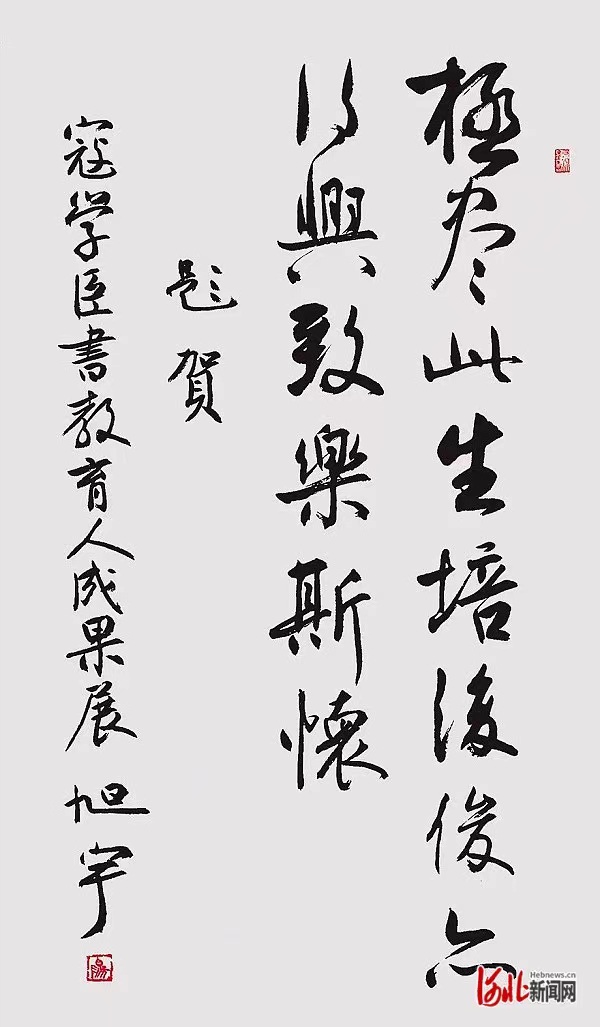 極尽此生培後俊亦
得興致樂斯懷
題賀
寇学臣書教育人成果展 旭宇
Hebnews.cn
河北新闻网